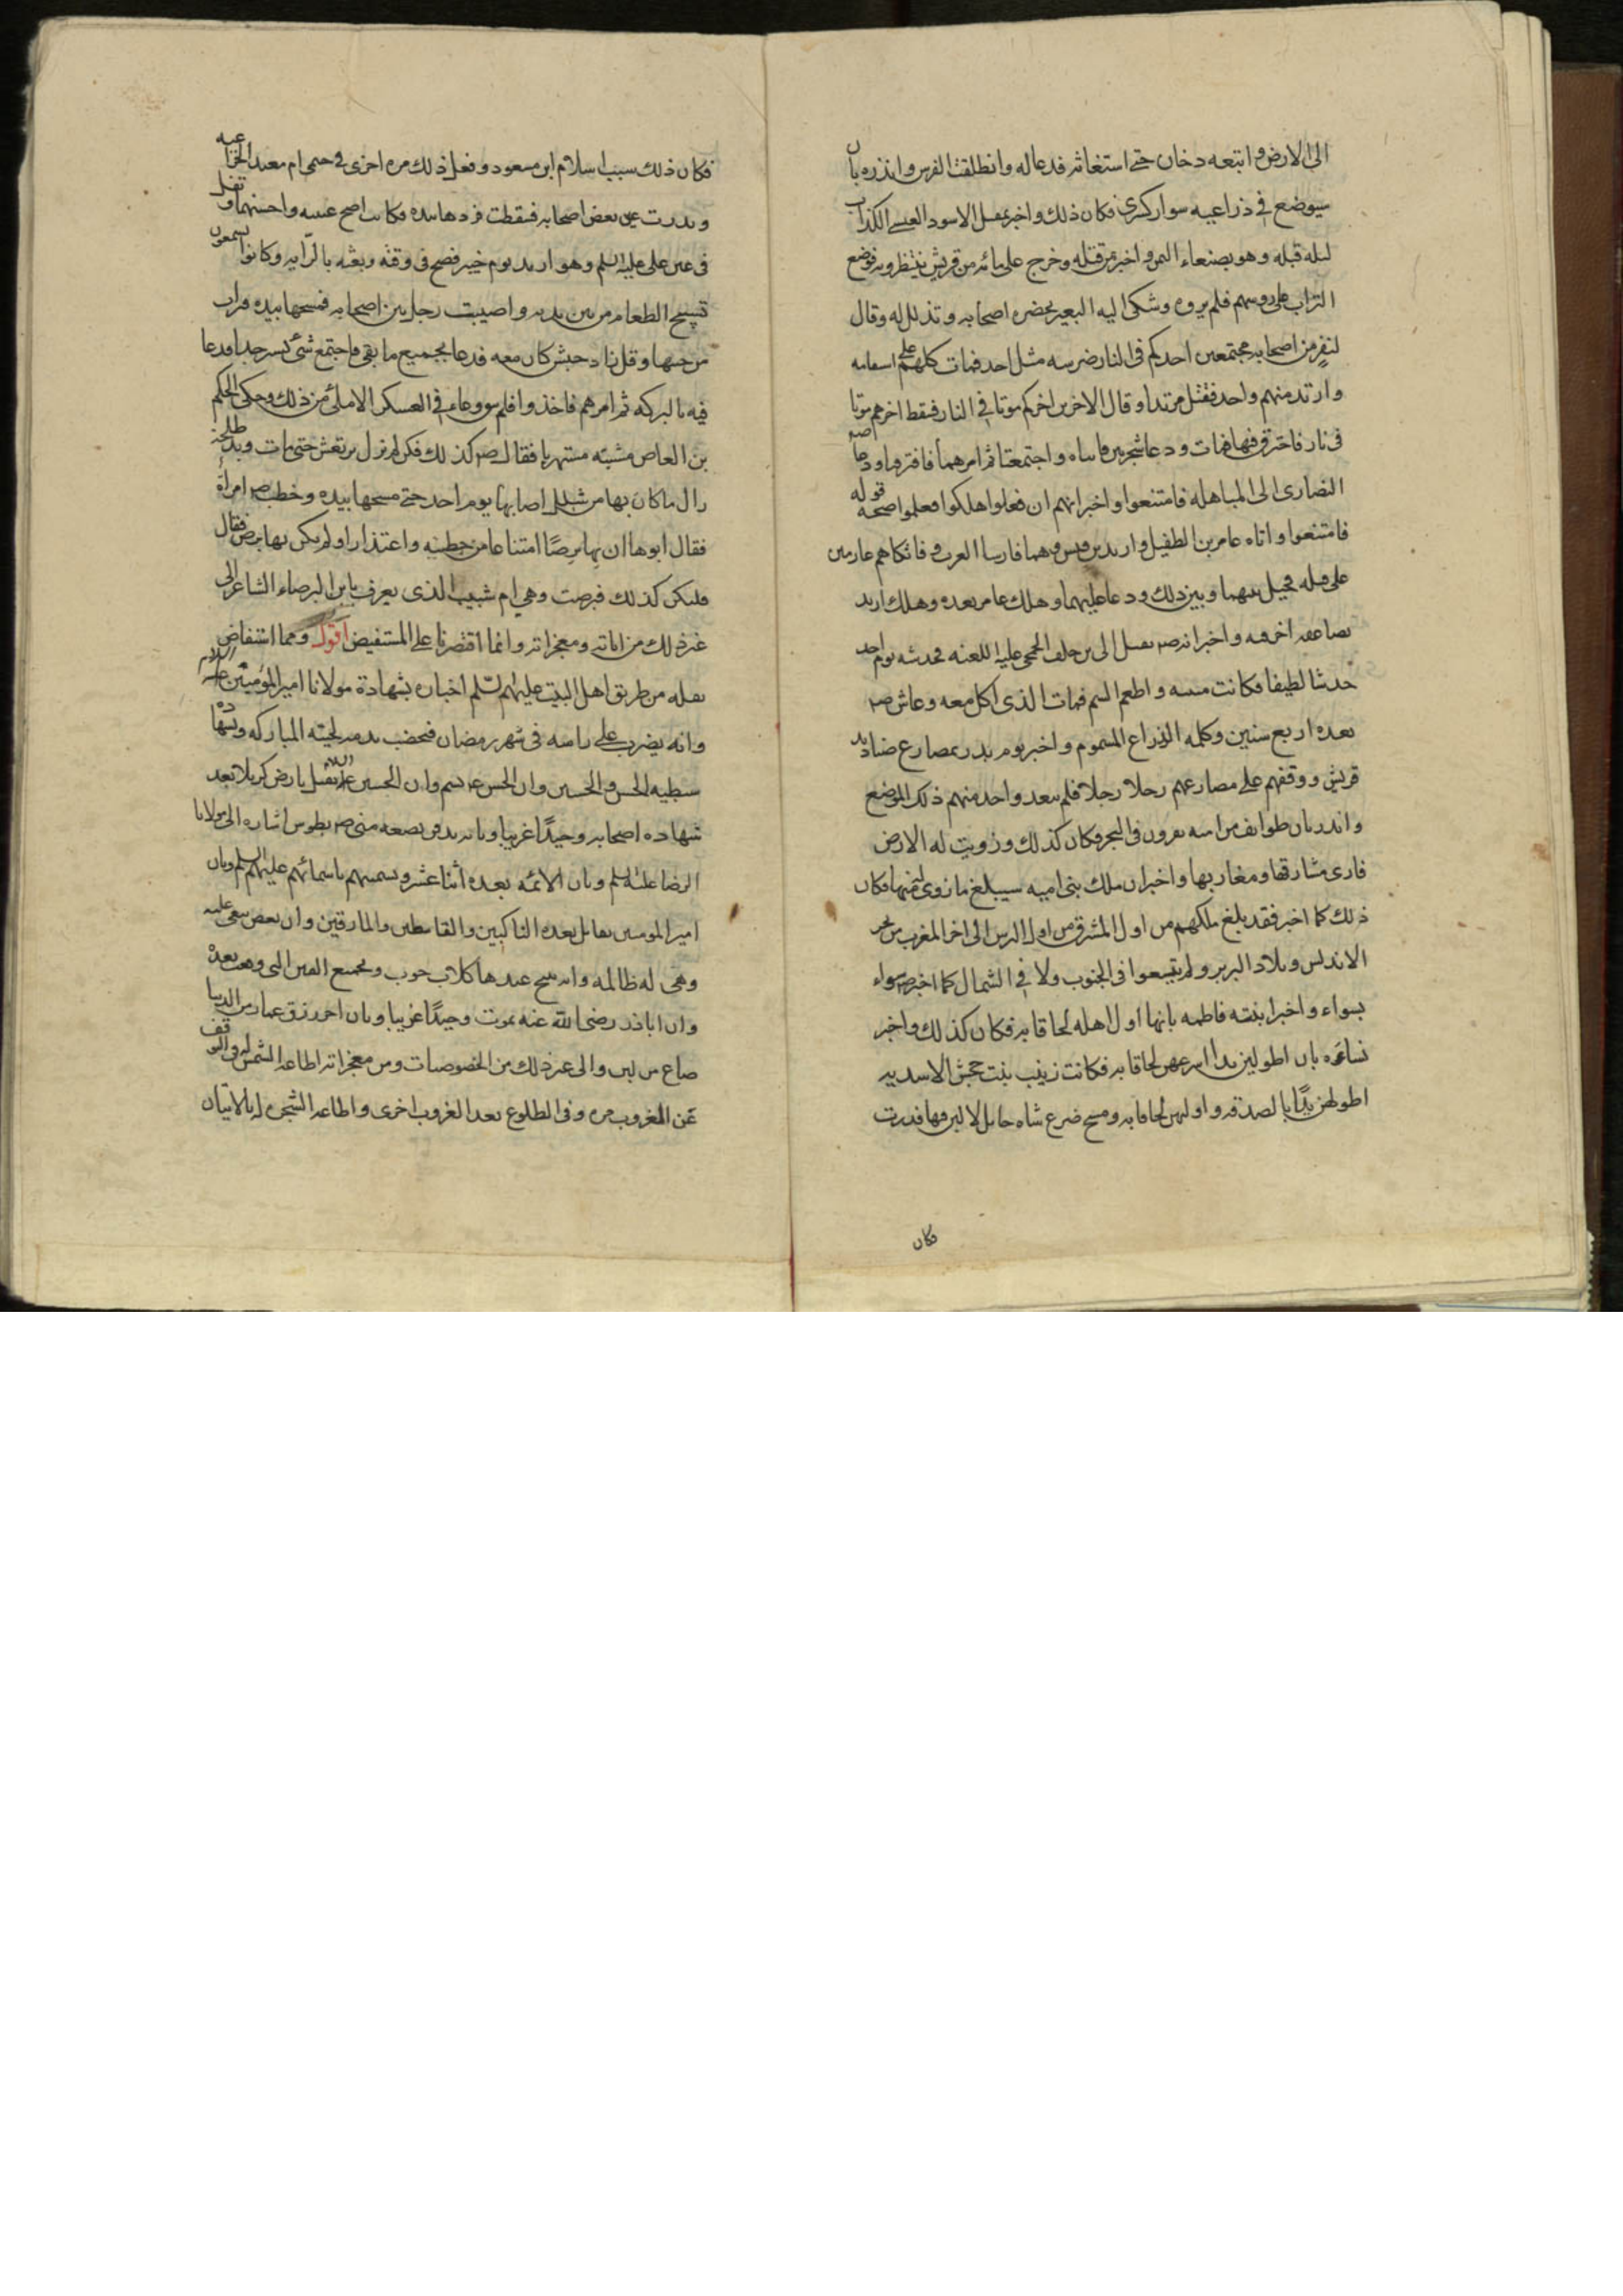 الى الارض و اتبعه دخان حتى استغاثه فدعا له وانطلقت الفرس وانذره بان
سيوضع في ذراعيه سوار كسرى فكان ذلك واخبر بقتل الاسود العنسي الكذاب
ليلة قبله وهو بصنعاء اليمن واخبر بمن قتله وخرج على مائه من قريش ينتظرونه فوضع
التراب على روسهم فلم يروه وشكى اليه البعير بحضره اصحابه وتذلل له وقال
لنفر من اصحابه مجتمعين احدكم في النار ضرسه مثل احد فمات كلهم على استقامه
وارتد منهم واحد فقتل مرتدا وقال الاخرين اخركم موتا في النار فسقط اخرهم موتا
في نار فاحترق فيها فمات ودعا شجرتين فاتتاه واجتمعتا ثم امرهما فافترقا ودعا
النصارى الى المباهله فامتنعوا واخبر انهم ان فعلوا هلكوا فعلموا صحه قوله
فامتنعوا واتاه عامر بن الطفيل واربد بن قيس وهما فارسا العرب وفاتكاهم عازمين
على قتله فحيل بينهما وبين ذلك ودعا عليهما وهلك عامر بعده وهلك اربد
بصاعقه احرقته واخبر انه ص يقتل ابي بن خلف الجمحي عليه اللعنه فخدشه يوم احد
خدشا لطيفا فكانت منيته واطعم السم فمات الذي اكل معه وعاش ص
بعده اربع سنين وكلمه الذراع المسموم واخبر يوم بدر بمصارع صناديد
قريش ووقفهم على مصارعهم رجلا رجلا فلم يتعد واحد منهم ذلك الموضع
وانذر بان طوايف من امته يغزون في البحر فكان كذلك وزويت له الارض
فارى مشارقها ومغاربها واخبر ان ملك بني اميه سيبلغ ما زوى له منها فكان
ذلك كما اخبر فقد بلغ ملكهم من اول المشرق من اول الترس الى اخر المغرب من بحر
الاندلس وبلاد البربر ولم يتسعوا في الجنوب ولا في الشمال كما اخبر ص سواء
بسواء واخبر ابنته فاطمه بانها اول اهله لحاقا به فكان كذلك واخبر
نساءه بان اطولهن يدا اسرعهن لحاقا به فكانت زينب بنت جحش الاسديه
اطولهن يدًا بالصدقه واولهن لحاقا به ومسح ضرع شاه حايل لا لبن فيها فدرت
فكان
فكان ذلك سبب اسلام ابن مسعود وفعل ذلك مره اخرى في خيمتي ام معبد الخزاعيه
وندرت عين بعض اصحابه فسقطت فردها بيده فكانت اصح عينيه واحسنهما وتفل
في عين علي عليه السلم وهو ارمد يوم خيبر فصح في وقته وبعثه بالرّايه وكانوا يسمعون
تسبيح الطعام من بين يديه واصيبت رجل بين اصحابه فمسحها بيده فبرات
من حينها وقل زاد جيش كان معه فدعا بجميع ما بقي فاجتمع شئ يسير جدا فدعا
فيه بالبركه ثم امرهم فاخذوا فلم يبق وعاء في العسكر الا ملئ من ذلك وحكى الحكم
بن العاص مشيته مستهزيا فقال ص كذلك فكن لم يزل يرتعش حتى مات ويد طلحة
زال ما كان بها من شلل اصابها يوم احد حتى مسحها بيده وخطب ص امرأة
فقال ابوها ان بها برصًا امتناعا من خطبته واعتذارا ولم يكن بها برص فقال
فلتكن كذلك فبرصت وهي ام شبيب الذي يعرف بابن البرصاء الشاعر الى
غير ذلك من اياته ومعجزاته وانما اقتصرنا على المستفيض اقول ومما استفاض
نقله من طريق اهل البيت عليهم السلم اخباره بشهادة مولانا امير المؤمنين عليه السلام
وانه يضرب على راسه في شهر رمضان فتخضب بدمه لحيته المباركه وبشهادة
سبطيه الحسن والحسين وان الحسن ع يسم وان الحسين عليه السلام يقتل بارض كربلا بعد
شهاده اصحابه وحيدًا غريبا وبانه يدفن بضعه مني ص بطوس اشاره الى مولانا
الرضا عليه السلم وبان الائمه بعده اثنا عشر ويسميهم باسمائهم عليهم السلم وبان
امير المومنين يقاتل بعده الناكثين والقاسطين والمارقين وان بعض تبغي عليه
وهي له ظالمه وانه تنبح عندها كلاب حوب وبجميع الفتن التي وقعت بعده
وان اباذر رضي الله عنه يموت وحيدًا غريبا وبان اخر رزق عمار من الدنيا
صاع من لبن والى غير ذلك من الخصوصيات ومن معجزاته اطاعه الشمس له في التوقف
عن الغروب مره وفي الطلوع بعد الغروب اخرى واطاعه الشجره له بالاتيان